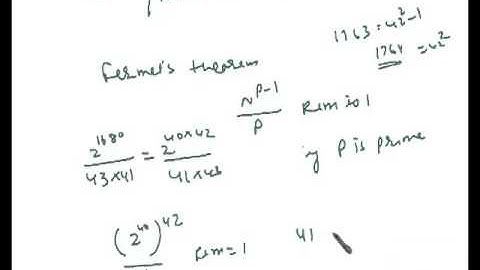 1763 = 42² - 1
1764 = 42²
Fermet's theorem
N^(P-1) / P Rem is 1
2^1680 / 43×41 = 2^(40×42) / 41×43
if P is prime
(2^40)^42 Rem = 1
41